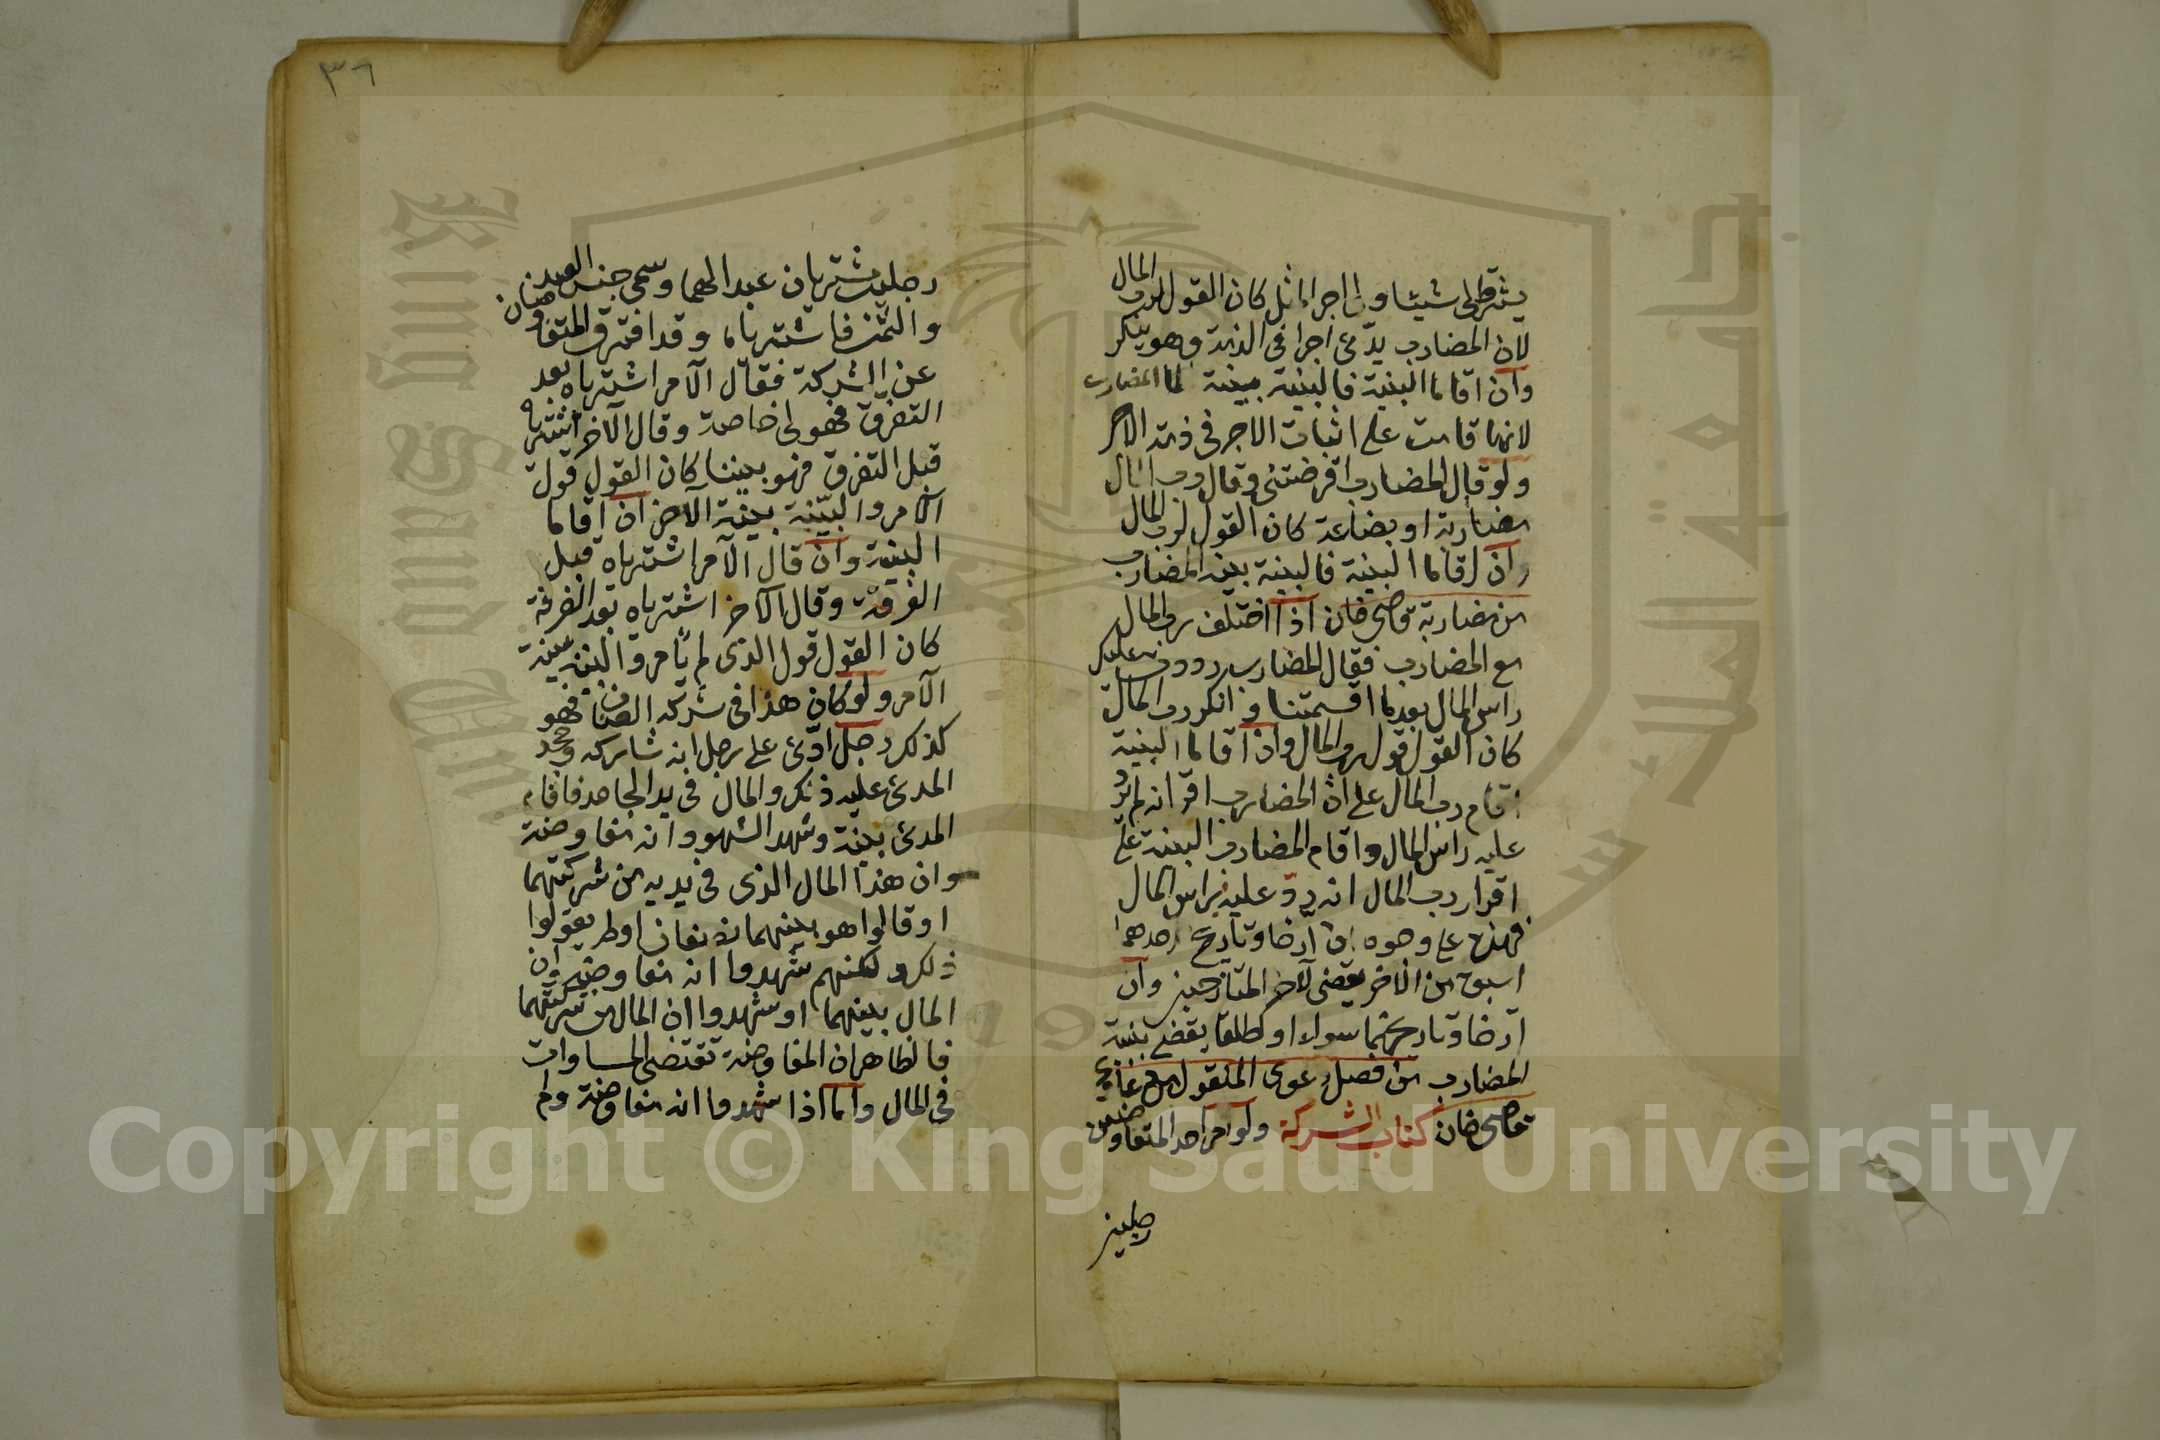 يشترط لي شيئا ولي اجر المثل كان القول لرب المال
لان المضارب يدعى اجرا في الذمة وهو ينكر
وان اقاما البينة فالبينة بينة المضارب
لانها قامت على اثبات الاجر في ذمة الاخر
ولو قال المضارب اقرضتنى وقال رب المال
مضاربة او بضاعة كان القول لرب المال
وان اقاما البينة فالبينة بينة المضارب
من مضاربة قاضى خان اذا اختلف رب المال
مع المضارب فقال المضارب رددت عليك
راس المال بعد ما اقتسمنا و انكر رب المال
كان القول قول رب المال وان اقاما البينة
اقام رب المال على ان المضارب اقر انه لم يرد
عليه راس المال واقام المضارب البينة على
اقرار رب المال انه رد عليه راس المال
فهذه على وجوه ان ارخا وتاريخ احدهما
اسبق من الاخر يقضى لآخر التاريخين وان
ارخا وتاريخهما سواء او اطلقا يقضى ببينة
المضارب من فصل دعوى المنقول من
قاضى خان كتاب الشركة ولو امر احد المتفاوضين
رجلين
٣٦
رجلين يشتريان عبدا لهما وسمى جنس العبد
والثمن فاشترياه وقد افترق المتفاوضان
عن الشركة فقال الآمر اشترياه بعد
التفرق فهو لى خاصة وقال الآخر اشترياه
قبل التفرق فهو بيننا كان القول قول
الآمر والبينة بينة الآخر ان اقاما
البينة وان قال الآمر اشترياه قبل
الفرقة وقال الآخر اشترياه بعد الفرقة
كان القول قول الذى لم يأمر والبينة بينة
الآمر ولو كان هذا فى شركة العنان فهو
كذلك رجل ادعى على رجل انه شاركه وجحد
المدعى عليه ذلك والمال فى يد الجاحد فاقام
المدعى بينة وشهد الشهود انه مفاوضة
وان هذا المال الذى فى يديه من شركتهما
او قالوا هو بينهما نصفان او لم يقولوا
ذلك ولكنهم شهدوا انه مفاوضه وان
المال بينهما او شهدوا ان المال من شركتهما
فالظاهر ان المفاوضة تقتضى المساوات
فى المال واما اذا شهدوا انه مفاوضة ولم
Copyright © King Saud University
جامعة الملك سعود
King Saud University
19